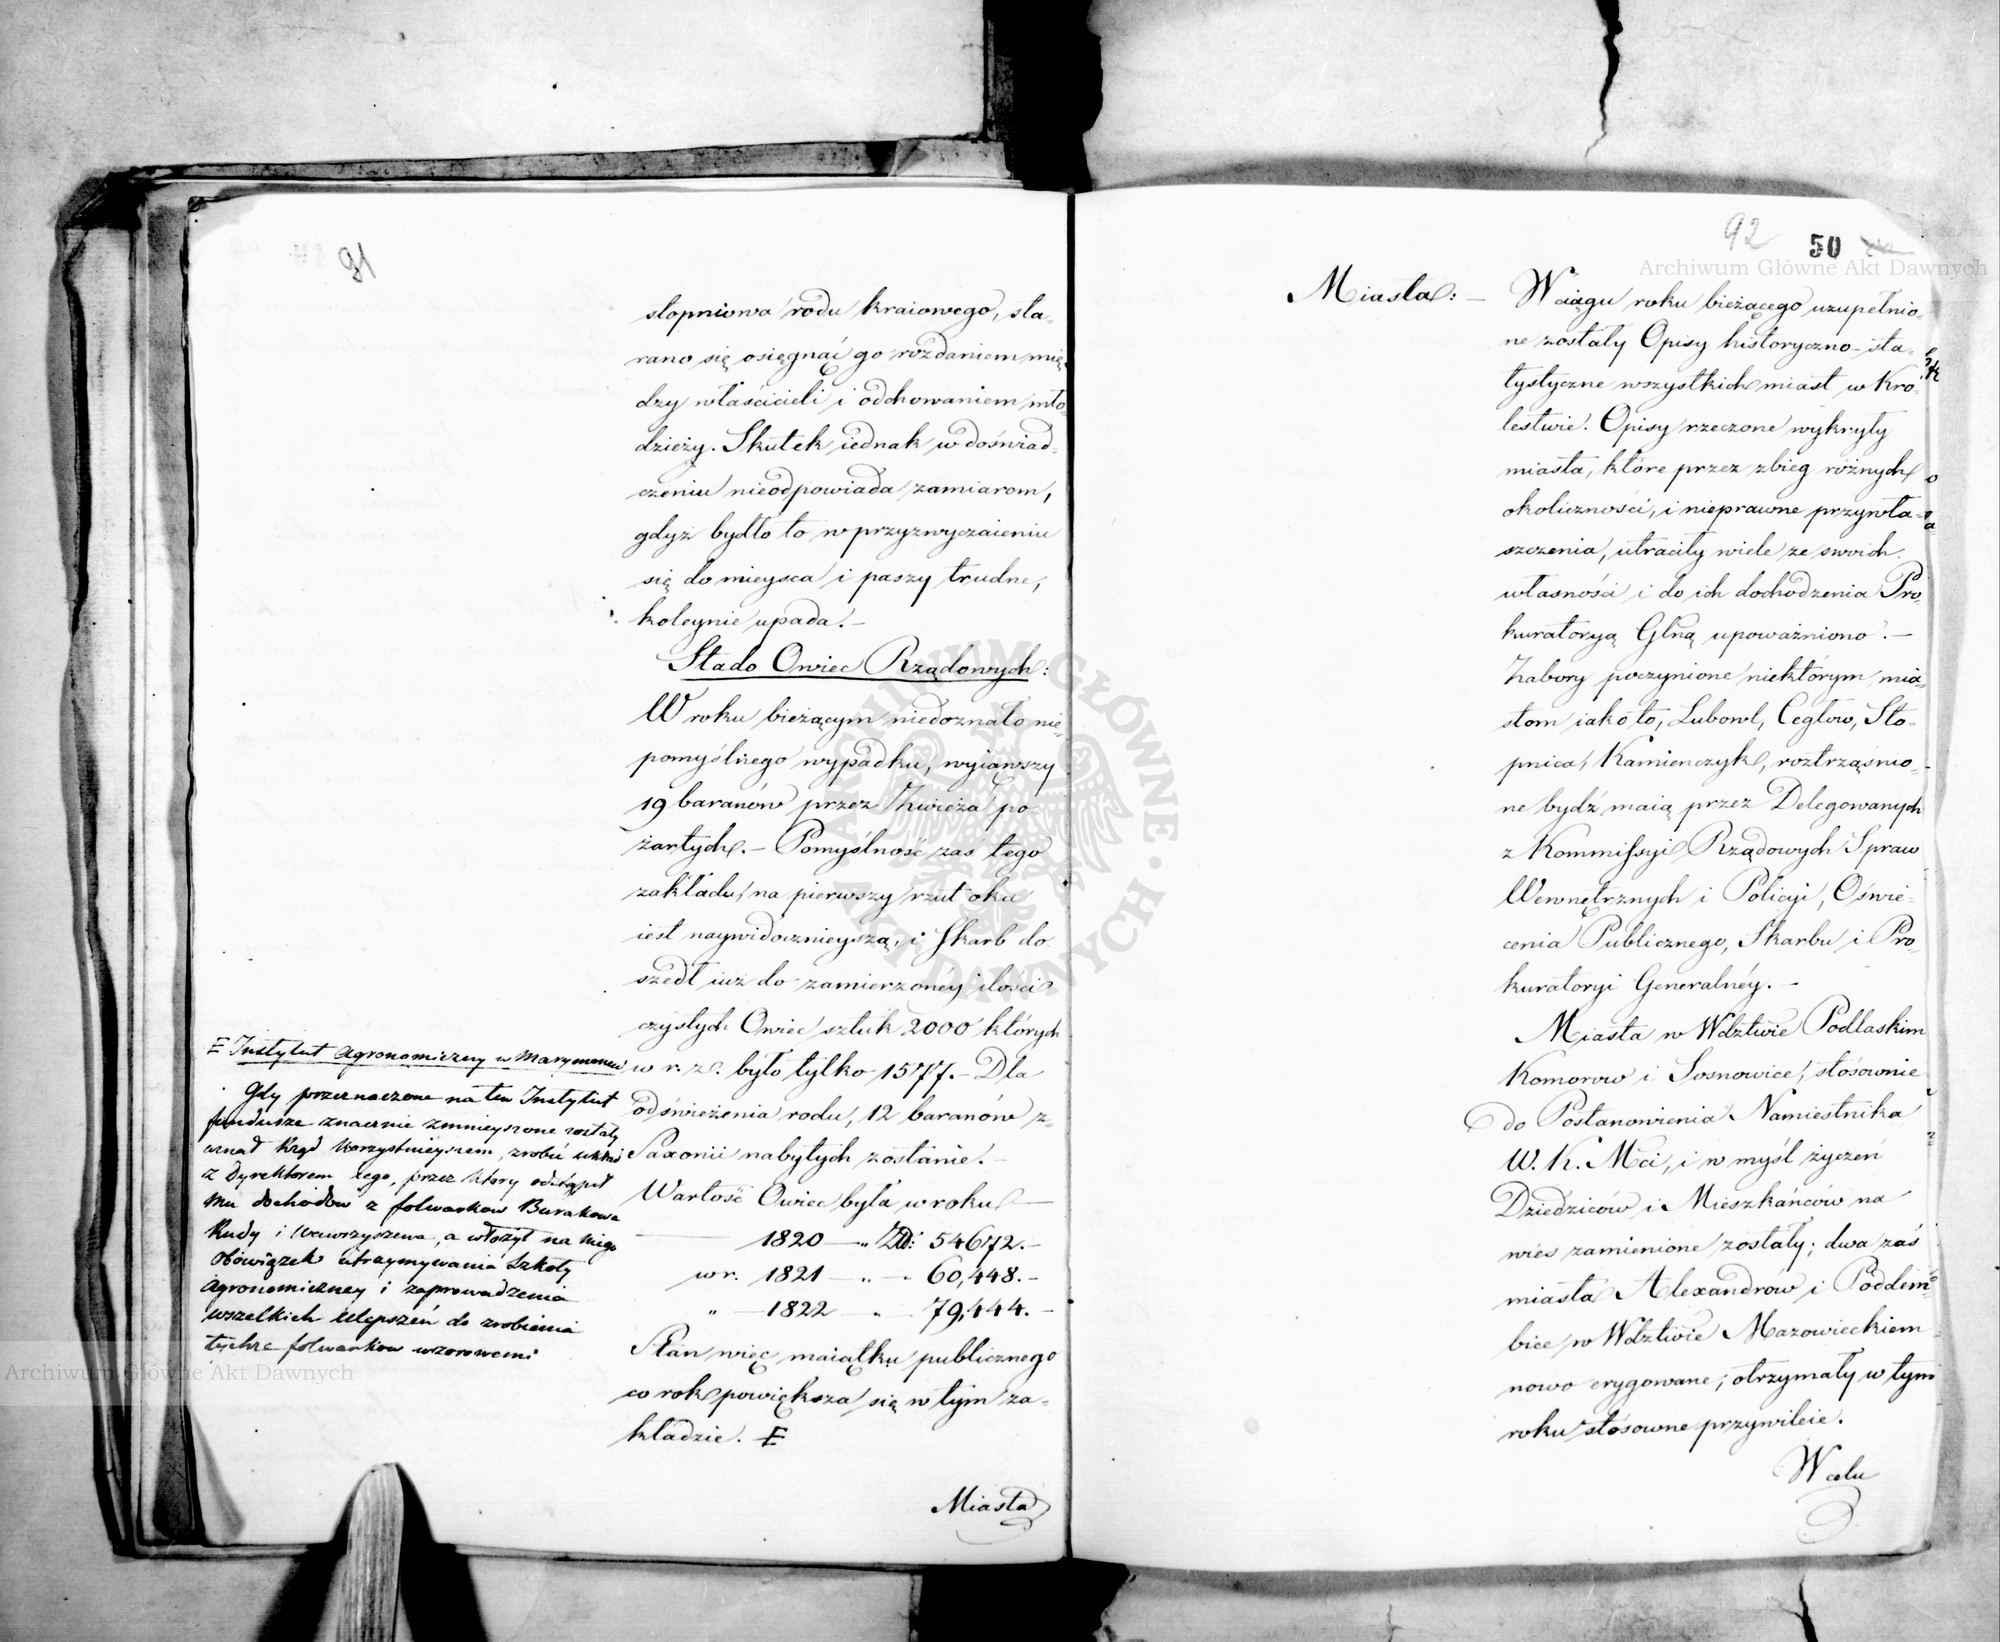 91
stopniowa rodu kraiowego, sta-
rano się osięgnąć go rozdaniem mię-
dzy właścicieli i odchowaniem mło-
dzieży. Skutek iednak w doświad-
czeniu nieodpowiada zamiarom,
gdyż bydło to w przyzwyczaieniu
się do mieysca i paszy trudne,
koleynie upada. –
Stado Owiec Rządowych:
W roku bieżącym niedoznało nie-
pomyślnego wypadku, wyiąwszy
19 baranów przez Zwierza po-
żartych. – Pomyślność zaś tego
zakładu, na pierwszy rzut oka
iest naywidocznieyszą, i Skarb do
szedł iuż do zamierzonéy ilości
czystych Owiec sztuk 2000 których
w r. z. było tylko 1577. – Dla
odświeżenia rodu, 12 baranów z
Saxonii nabytych zostanie. –
Wartość Owiec była w roku –
1820 — „ Zł: 54672. –
w r. 1821 — „ — 60,448. –
„ — 1822 „ 79,444. –
Stan więc maiątku publicznego
co rok powiększa się w tym za-
kładzie. E
Miasta
E Instytut agronomiczny w Marymoncu
Gdy przeznaczone na ten Instytut
fundusze znacznie zmnieyszone zostały
uznał Rząd korzystnieyszem, zrobić układ
z Dyrektorem iego, przez ktory odstąpił
mu dochodów z folwarkow Burakowa
Rudy i Wawrzyszewa, a włożył na niego
obowiązek utrzymywania Szkoły
agronomiczney i zaprowadzenia
wszelkich ulepszeń do zrobienia
tychże folwarkow wzorowemi
92
50
Miasta: –
W ciągu roku bieżącego uzupełnio-
ne zostały Opisy historyczno-sta-
tystyczne wszystkich miast w Kro-
lestwie. Opisy rzeczone wykryły
miasta, które przez zbieg różnych
okoliczności, i nieprawne przywła-
szczenia, utraciły wiele ze swoich
własności i do ich dochodzenia Pro-
kuratoryą Glną upoważniono. –
Zabory poczynione niektórym mia-
stom iako to, Lubowl, Cegłow, Sto-
pnica, Kamienczyk, roztrząśnio-
ne bydź maią przez Delegowanych
z Kommissyi Rządowych Spraw
Wewnętrznych i Policyi, Oświe-
cenia Publicznego, Skarbu i Pro-
kuratoryi Generalnéy. –
Miasta w Wdztwie Podlaskim
Komorow i Sosnowice, stósownie
do Postanowienia Namiestnika
W. K. Mci, i w myśl życzeń
Dziedziców i Mieszkańców na
wieś zamienione zostały; dwa zaś
miasta Alexandrow i Poddem-
bice w Wdztwie Mazowieckiem
nowo erygowane, otrzymały w tym
roku stósowne przywileie.
W celu
Archiwum Główne Akt Dawnych
Archiwum Główne Akt Dawnych
ARCHIWUM GŁÓWNE AKT DAWNYCH